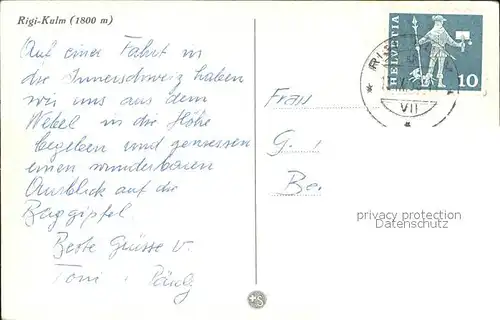 Rigi-Kulm (1800 m)
Auf einer Fahrt in
die Innerschweiz haben
wir uns aus dem
Nebel in die Höhe
begeben und geniessen
einen wunderbaren
Ausblick auf die
Berggipfel.
Beste Grüsse v.
Toni
Frau
G.
Be.
HELVETIA
10
VII
privacy protection
Datenschutz